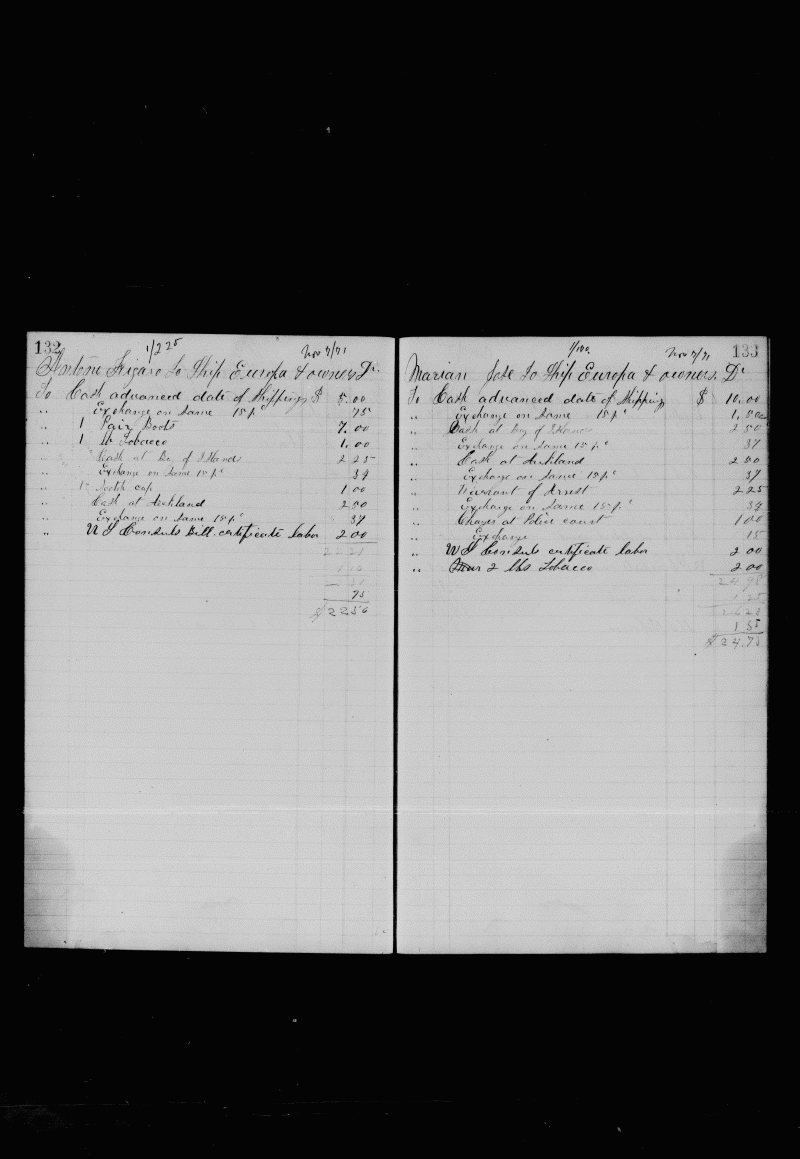 132
1/225
Nov 7/71
Antone Figaro To Ship Europa & owners Dr
To Cash advanced date of Shipping $ 5.00
" Exchange on Same 15 pc 75
" 1 Pair Boots 7.00
" 1 lb Tobacco 1.00
" Cash at B. of Islands 2 25
Exchange on Same 15 pc 34
" 1 Scotch cap 1 00
" Cash at Auckland 2 50
" Exchange on Same 15 pc 37
" U S Consuls Bill certificate labor 2 00
22 21
75
$ 22 56
133
1/180
Nov 7/71
Marian Jose To Ship Europa & owners. Dr
To Cash advanced date of Shipping $ 10.00
" Exchange on Same 15 pc 1.50
" Cash at Bay of Islands 2 50
" Exchange on Same 15 pc 37
" Cash at Auckland 2 50
" Exchange on Same 15 pc 37
" Warrant of Arrest 2 25
" Exchange on Same 15 pc 34
" Charges at Police court 1 00
" Exchange 15
" U S Consuls certificate labor 2 00
" 2 lbs Tobacco 2 00
24 98
1 25
1 85
$ 24.75